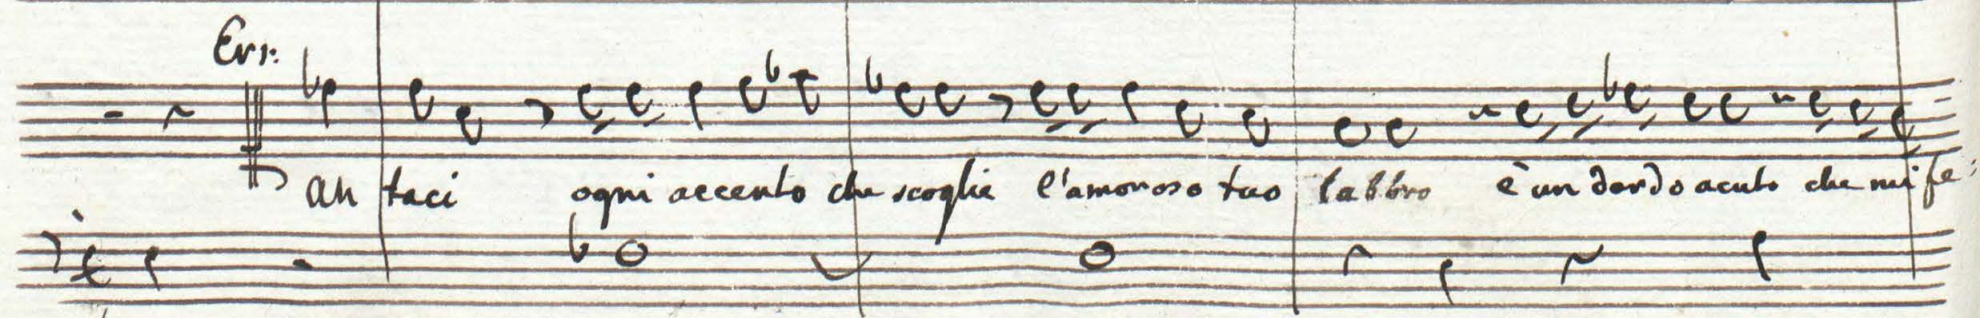 Err:
ah taci ogni accento che scoglie l'amoroso tuo labbro è un dardo acuto che mi fe: